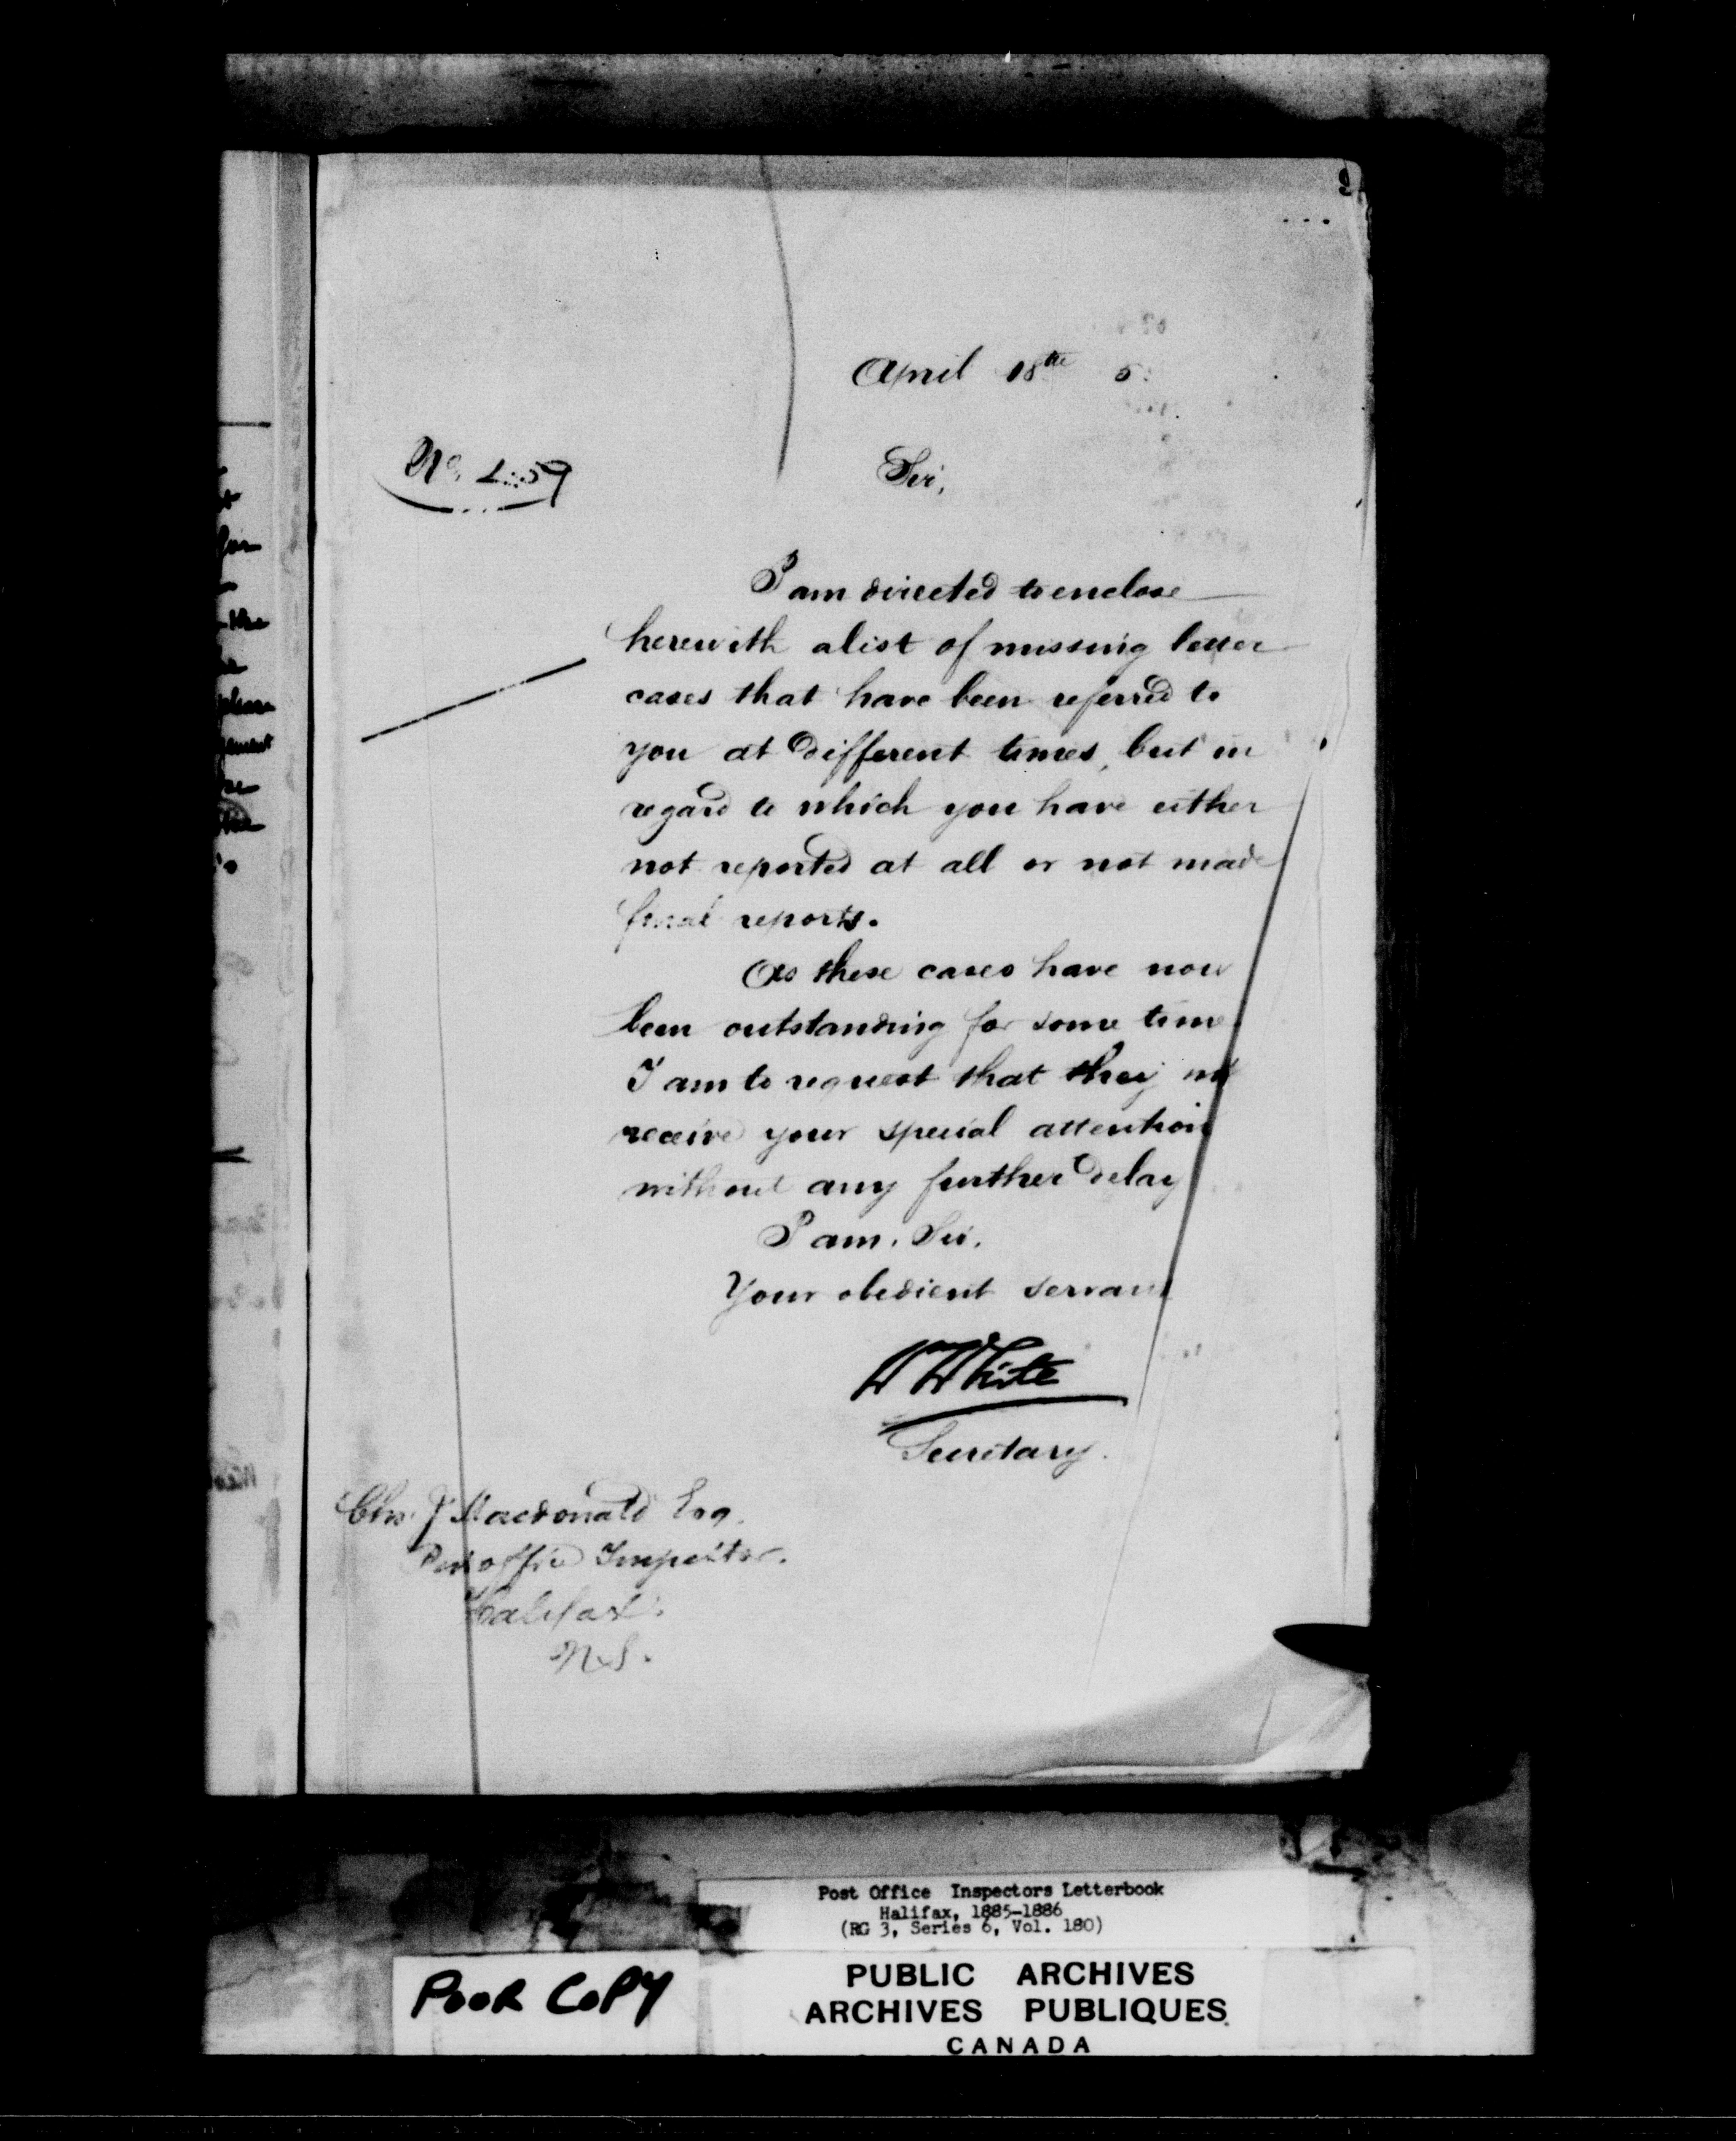 9
April 18th 5
No.
Sir,
I am directed to enclose
herewith a list of missing letter
cases that have been referred to
you at different times, but in
regard to which you have either
not reported at all or not made
final reports.
As these cases have now
been outstanding for some time
I am to request that they
receive your special attention
without any further delay
I am, Sir,
Your obedient servant
W White
Secretary.
Chs. J Macdonald Esq.
Post office Inspector.
Halifax.
N.S.
Post Office Inspectors Letterbook
Halifax, 1885-1886
(RG 3, Series 6, Vol. 180)
POOR COPY
PUBLIC ARCHIVES
ARCHIVES PUBLIQUES
CANADA